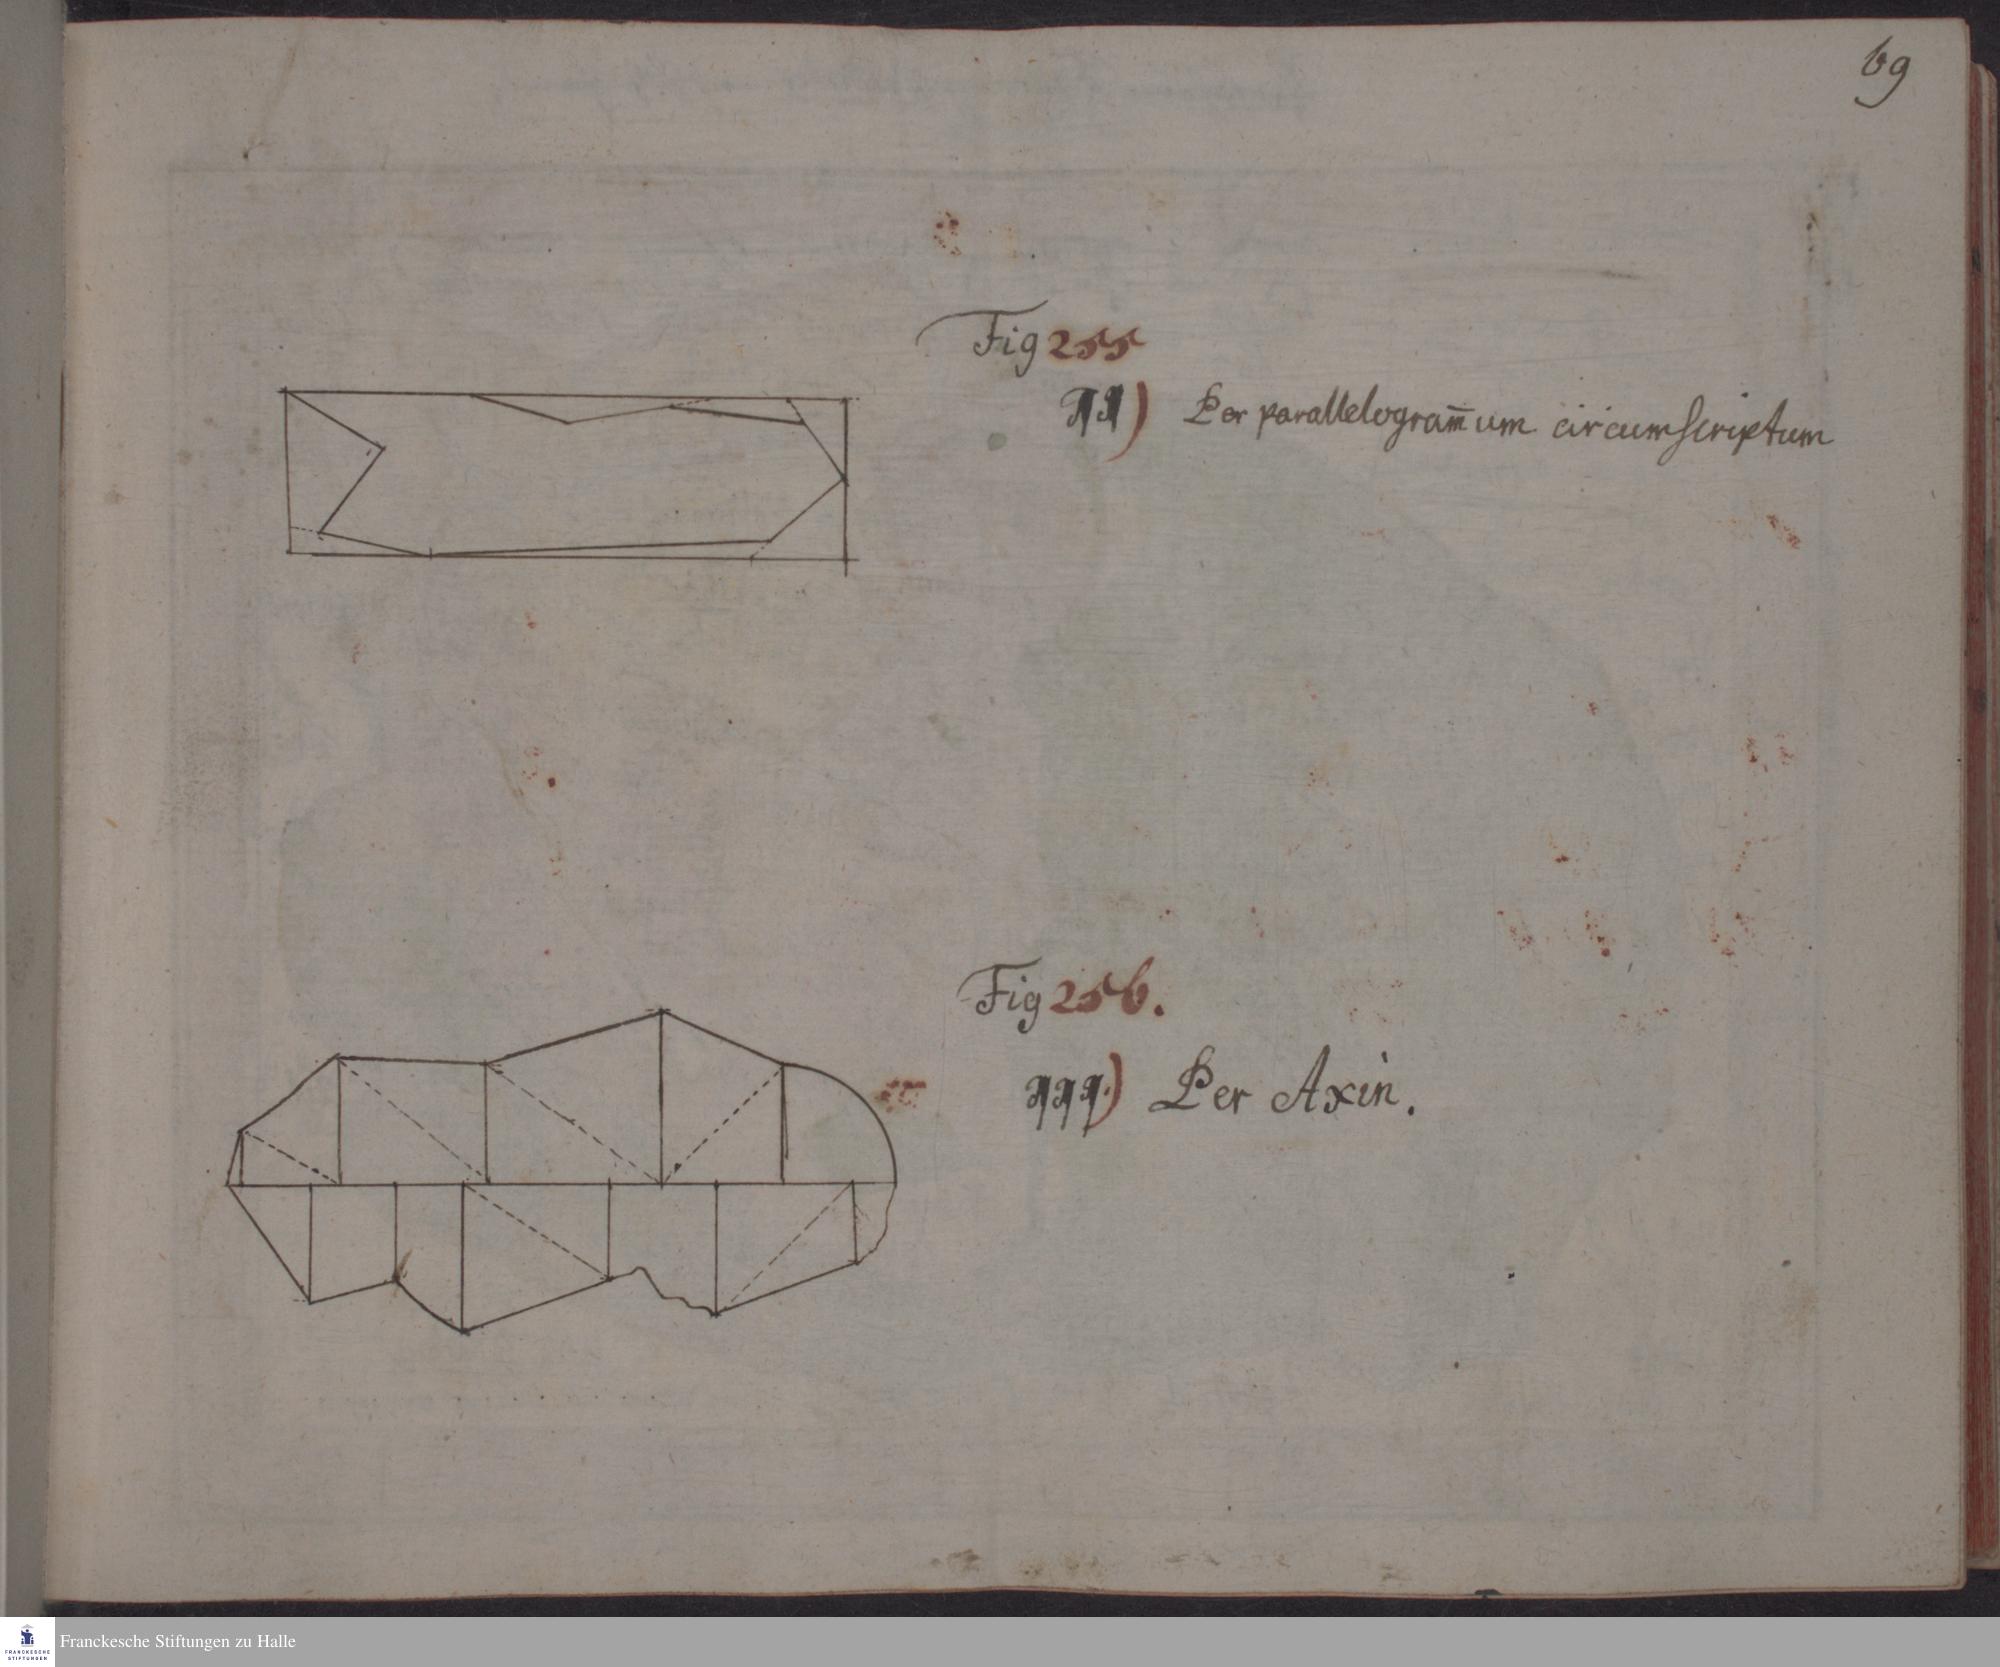 69
Fig 255
qq) Per parallelogram̄um circumscriptum
Fig 256.
qqq.) Per Axin.
Franckesche Stiftungen zu Halle
FRANCKESCHE
STIFTUNGEN